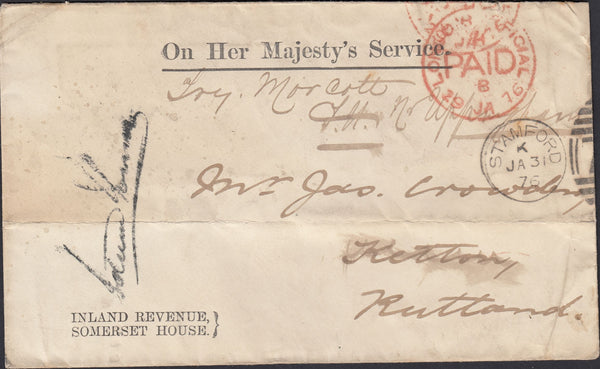 On Her Majesty's Service.
LONDON OFFICIAL
PAID
B
29 JA 76
Try Morcott
Nr Uppingham
STAMFORD
K
JA 31
76
Mr Jas. Crowden,
Ketton,
Rutland.
INLAND REVENUE,
SOMERSET HOUSE.